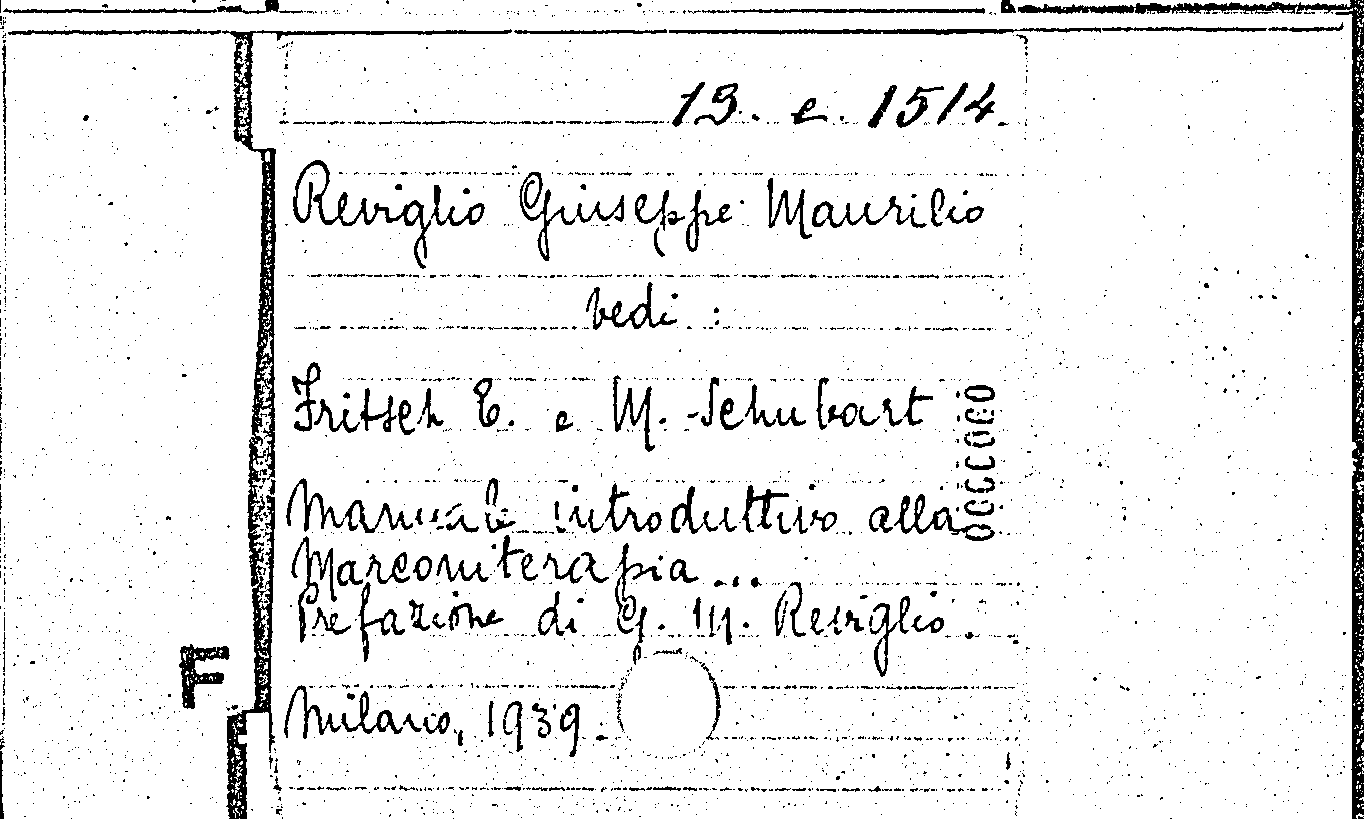 13. e. 1514.
Reviglio Giuseppe Maurilio
vedi :
Fritsch E. e M. Schubart
Manuale introduttivo alla
Marconiterapia ...
Prefazione di G. M. Reviglio.
F
Milano, 1939.